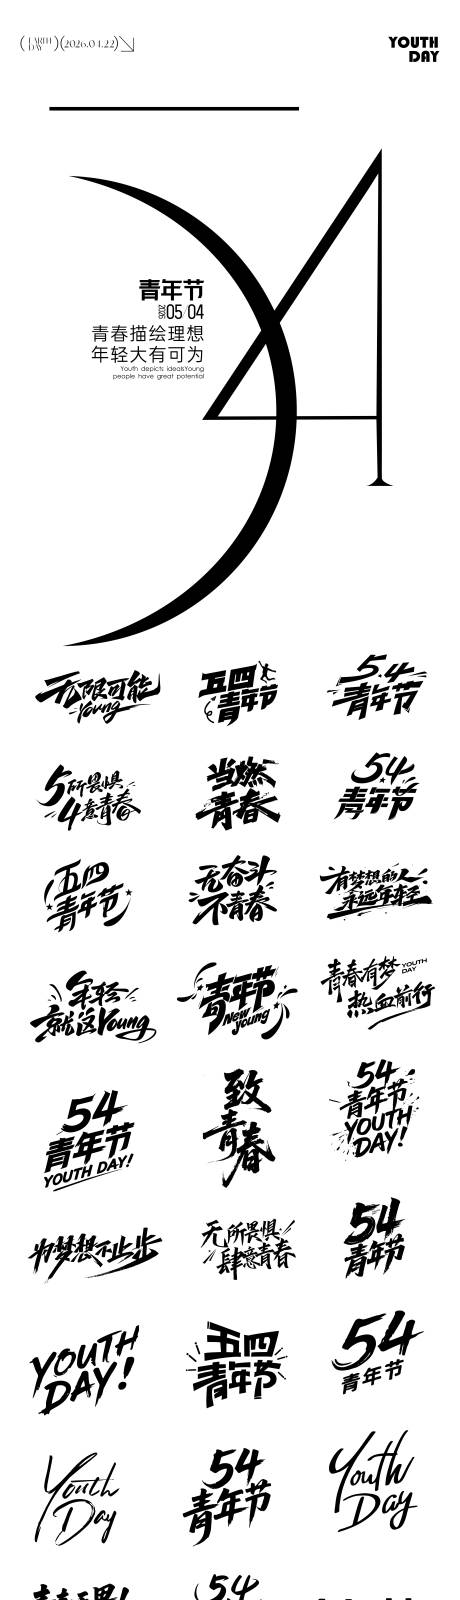 (EARTH DAY)(2026.04.22)
YOUTH
DAY
54
青年节
2026 05/04
青春描绘理想
年轻大有可为
Youth depicts idealsYoung
people have great potential
无限可能
Young
五四
青年节
5.4
青年节
5所畏惧
4意青春
当燃
青春
54
青年节
五四
青年节
无奋斗
不青春
有梦想的人
永远年轻
年轻
就这Young
青年节
New
young
青春有梦
YOUTH
DAY
热血前行
54
青年节
YOUTH DAY!
致
青春
54
青年节
YOUTH
DAY!
为梦想不止步
无所畏惧
肆意青春
54
青年节
YOUTH
DAY!
五四
青年节
54
青年节
Youth
Day
54
青年节
Youth
Day
54